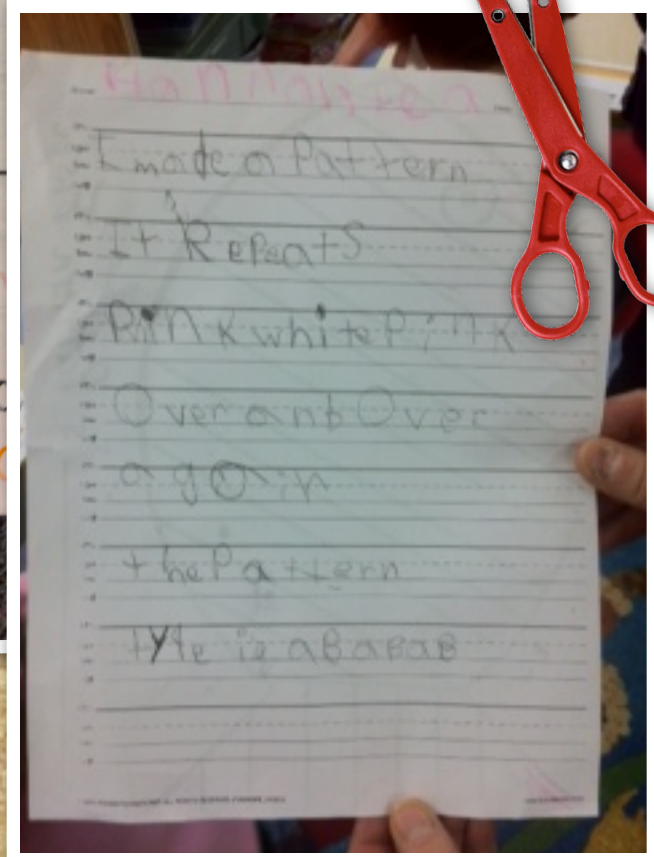 I made a Pattern
It RepeatS
Pink white Pink
Over anb Over
again
the Pattern
tyPe is aBaBaB